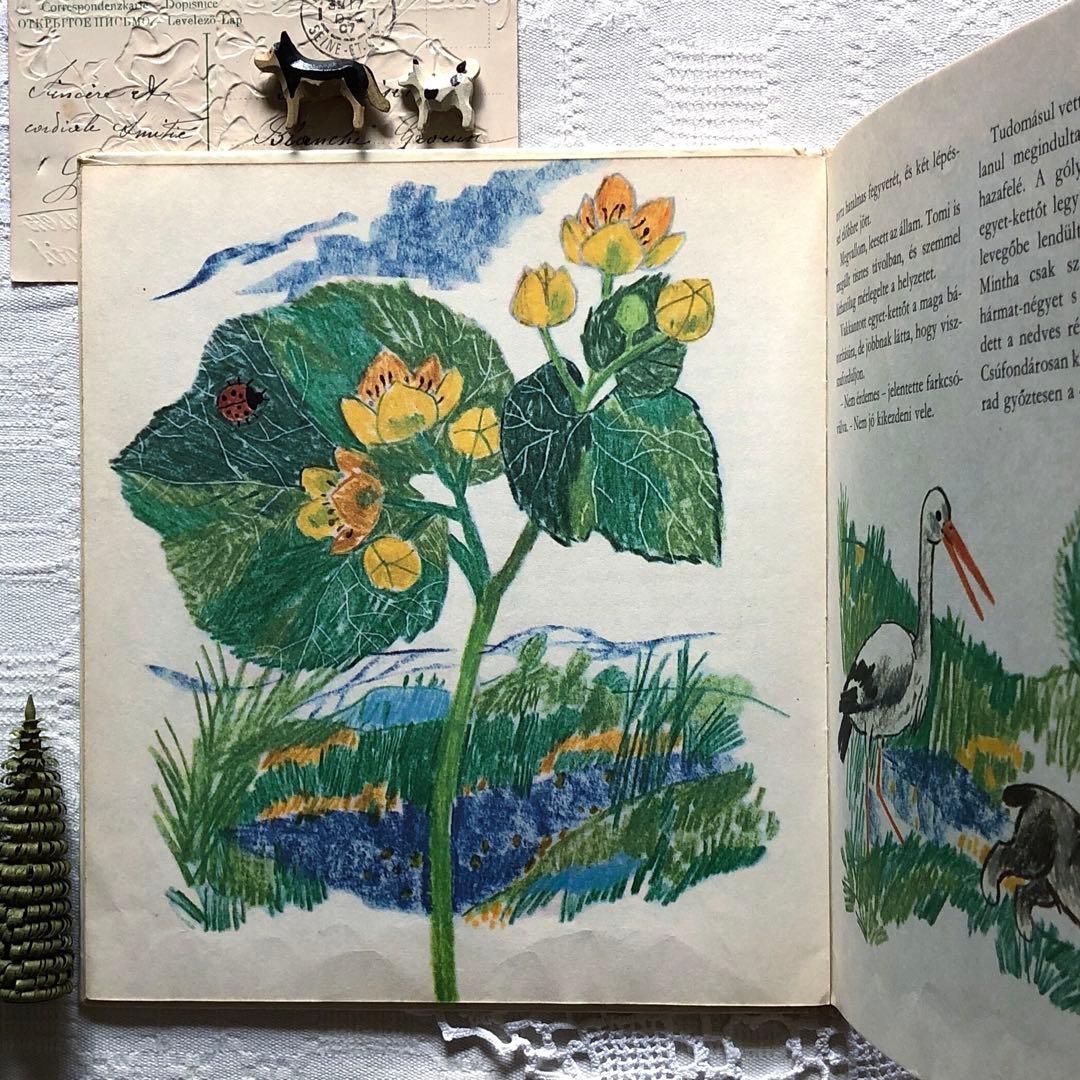 Correspondenzkarte - Dopisnice
ОТКРЫТОЕ ПИСЬМО. - Levelező-Lap
07
SEINE-ET-
Sincère et
cordiale Amitié
Blanche
hatalmas fegyverét, és két lépés-
sel előbbre jött.
Megvallom, leesett az állam. Tomi is
megállt tisztes távolban, és szemmel
láthatólag mérlegelte a helyzetet.
Vakkantott egyet-kettőt a maga bá-
torítására, de jobbnak látta, hogy visz-
szaforduljon.
- Nem érdemes - jelentette farkcsó-
válva. - Nem jó kikezdeni vele.
Tudomásul vett
lanul megindulta
hazafelé. A góly
egyet-kettőt legy
levegőbe lendült
Mintha csak sz
hármat-négyet s
dett a nedves ré
Csúfondárosan k
rad győztesen a